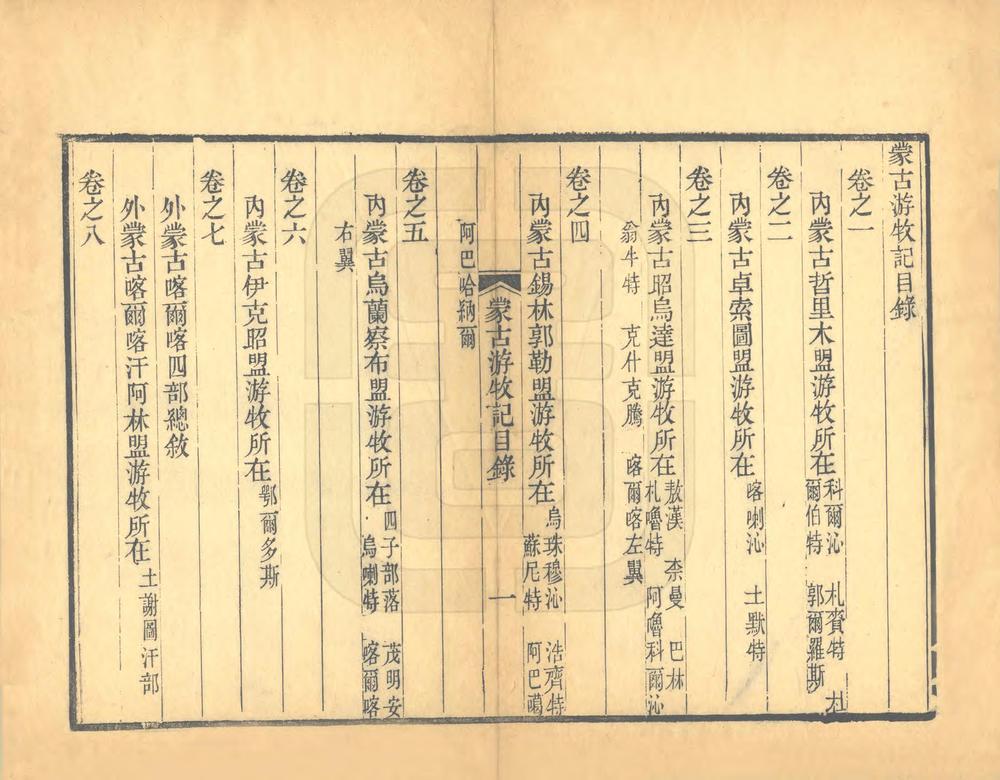 蒙古游牧記目錄
卷之一
內蒙古哲里木盟游牧所在 科爾沁 札賚特 杜
爾伯特 郭爾羅斯
卷之二
內蒙古卓索圖盟游牧所在 喀喇沁 土默特
卷之三
內蒙古昭烏達盟游牧所在 敖漢 柰曼 巴林
札嚕特 阿嚕科爾沁
翁牛特 克什克騰 喀爾喀左翼
卷之四
內蒙古錫林郭勒盟游牧所在 烏珠穆沁 浩齊特
蘇尼特 阿巴噶
蒙古游牧記目錄 一
阿巴哈納爾
卷之五
內蒙古烏蘭察布盟游牧所在 四子部落 茂明安
烏喇特 喀爾喀
右翼
卷之六
內蒙古伊克昭盟游牧所在 鄂爾多斯
卷之七
外蒙古喀爾喀四部總敘
外蒙古喀爾喀汗阿林盟游牧所在 土謝圖汗部
卷之八